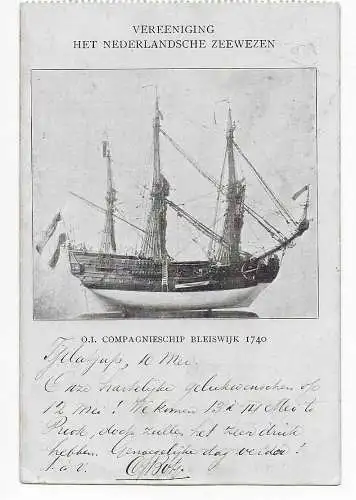 VEREENIGING
HET NEDERLANDSCHE ZEEWEZEN
O.I. COMPAGNIESCHIP BLEISWIJK 1740
Tjilatjap, 10 Mei.
Onze hartelijke gelukwenschen op
12 Mei! We komen 13 à 14 Mei te
Priok, doop zullen het zeer druk
hebben. Genoegelijke dag verder!
t.à.v.